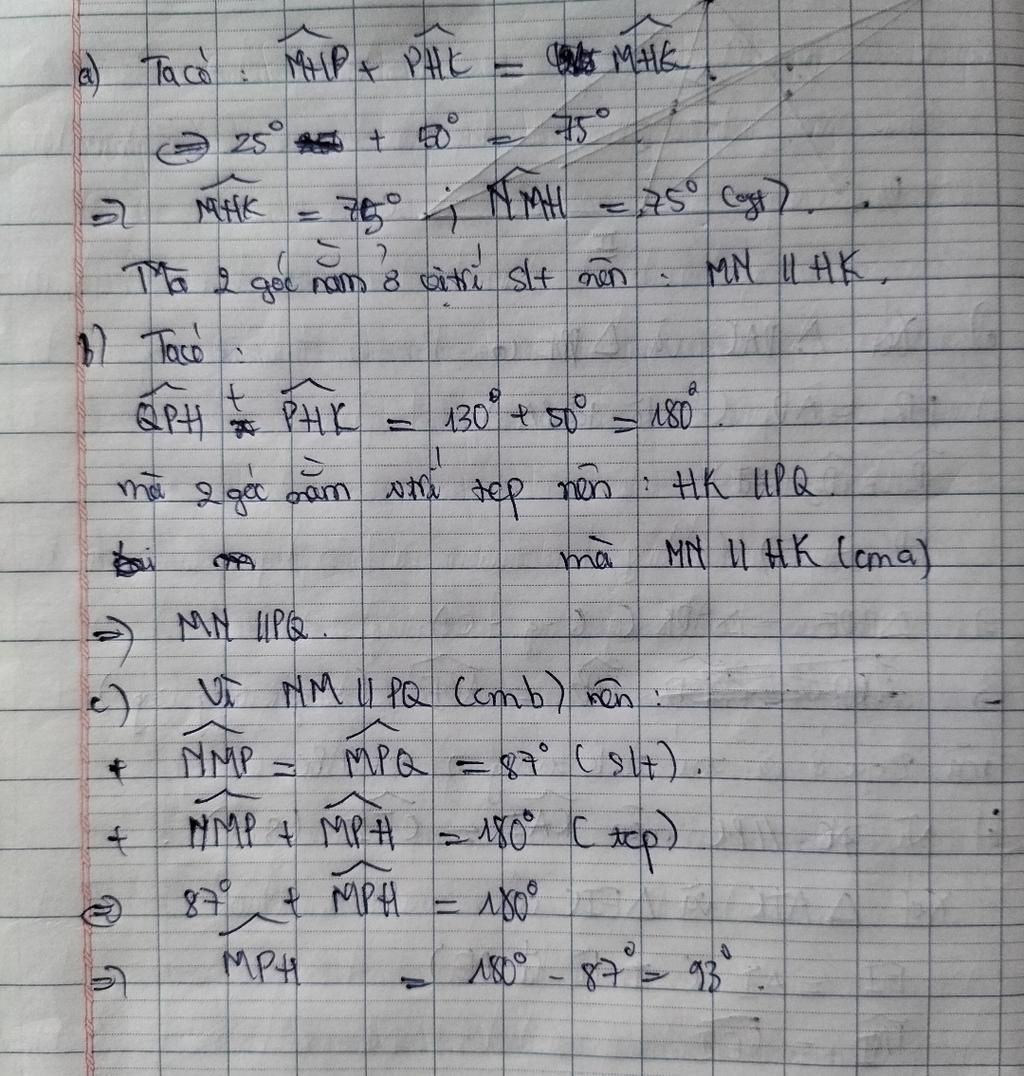 a) Ta có : MHP + PHK = MHK
<=> 25° + 50° = 75°
=> MHK = 75° ; NMH = 75° (gt).
Mà 2 góc nằm ở vị trí slt nên : MN // HK.
b) Ta có :
QPH + PHK = 130° + 50° = 180°.
mà 2 góc nằm vtrí tcp nên : HK // PQ
mà MN // HK (cma)
=> MN // PQ.
c) Vì NM // PQ (cmb) nên :
+ NMP = MPQ = 87° (slt).
+ NMP + MPH = 180° (tcp)
<=> 87° + MPH = 180°
=> MPH = 180° - 87° = 93°.